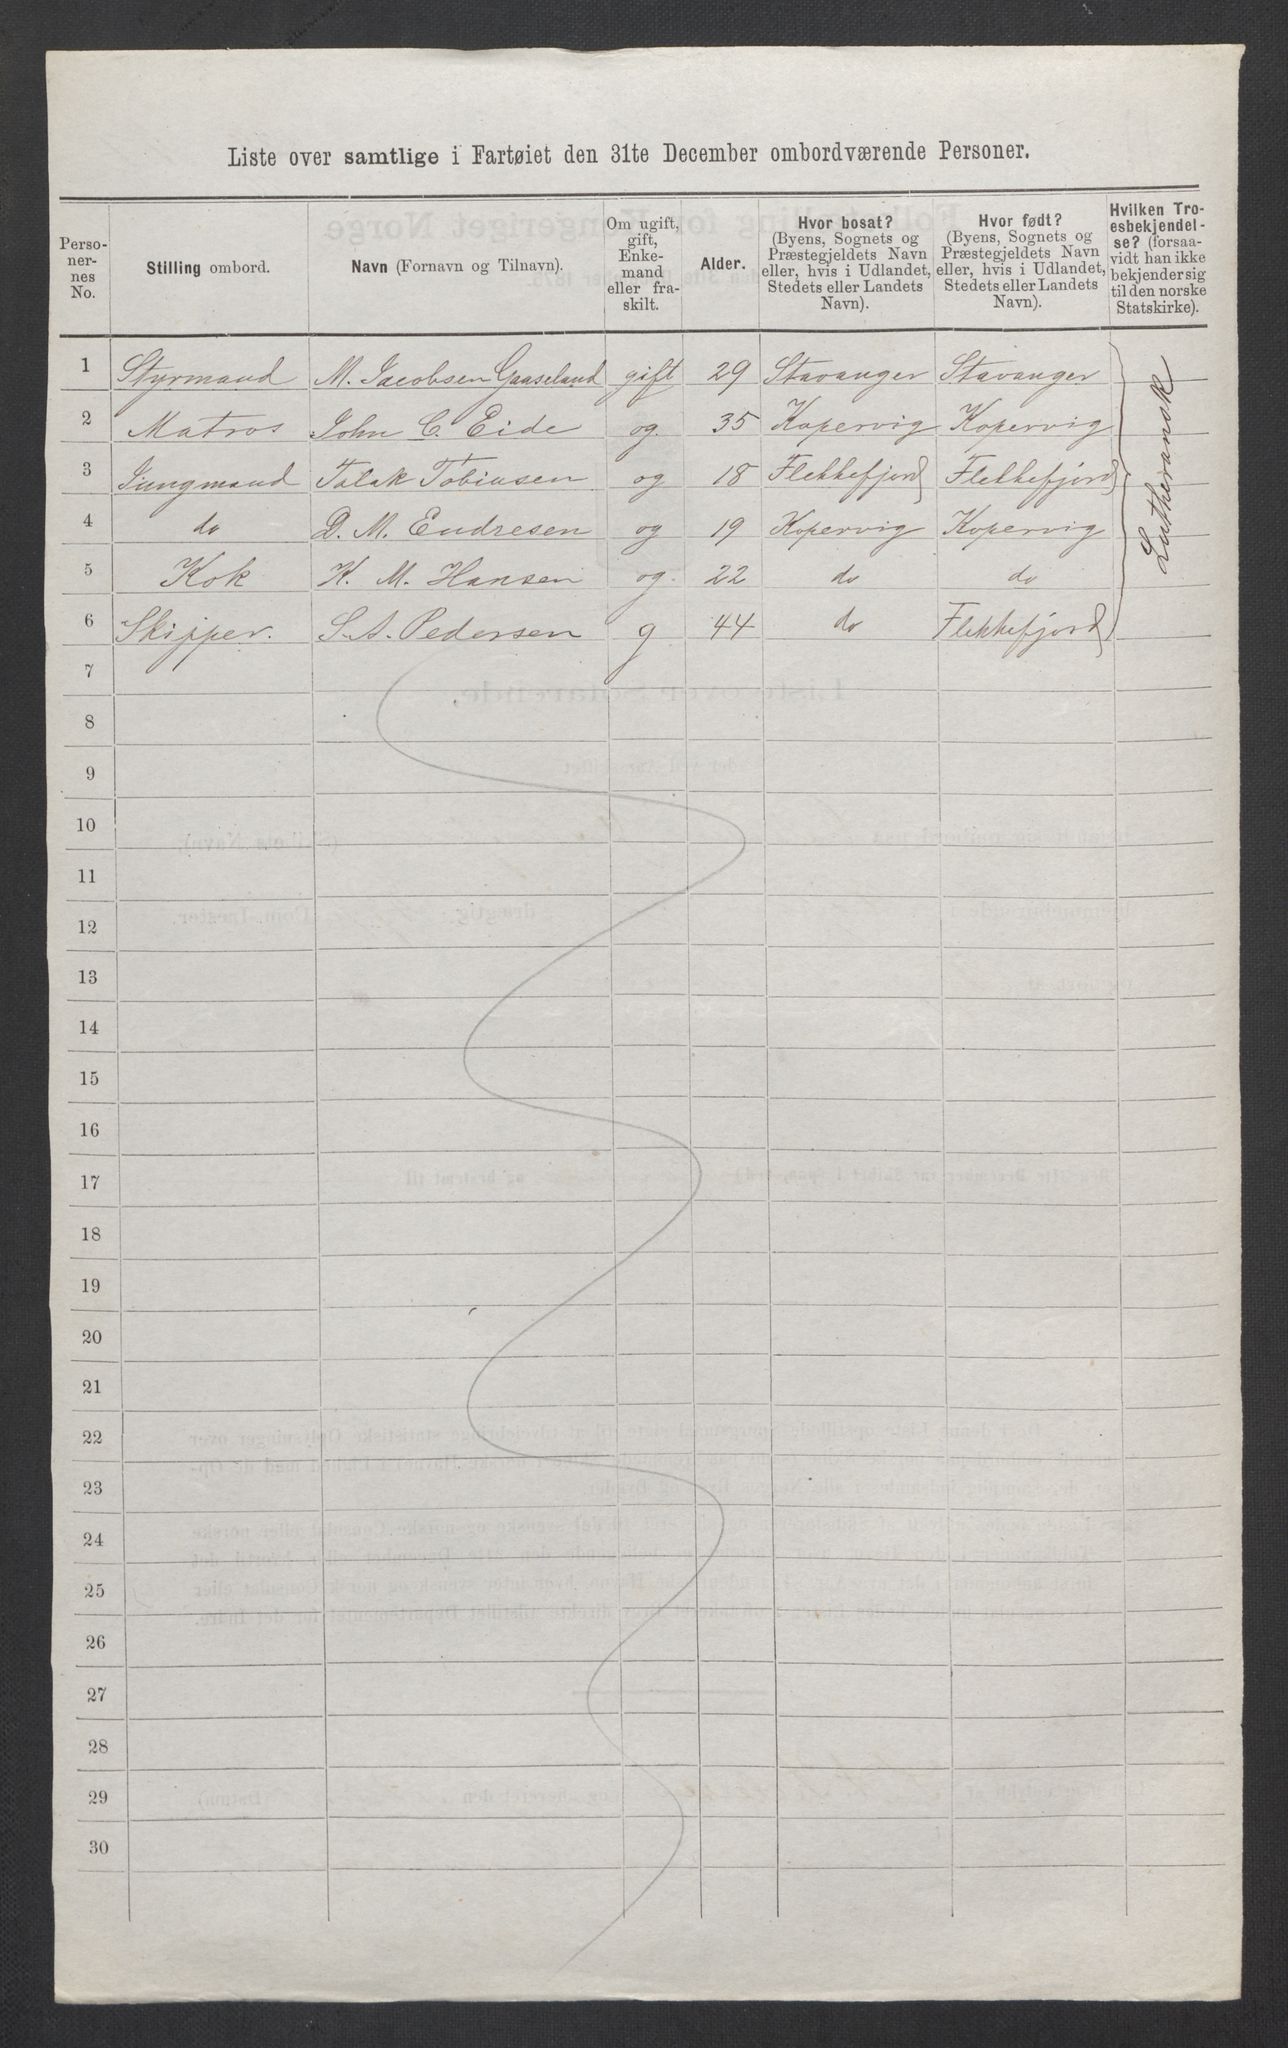 Liste over samtlige i Fartøiet den 31te December ombordværende Personer.
Perso-
ner-
nes
No.
Stilling ombord.
Navn (Fornavn og Tilnavn).
Om ugift,
gift,
Enke-
mand
eller fra-
skilt.
Alder.
Hvor bosat?
(Byens, Sognets og
Præstegjeldets Navn
eller, hvis i Udlandet,
Stedets eller Landets
Navn).
Hvor født?
(Byens, Sognets og
Præstegjeldets Navn
eller, hvis i Udlandet,
Stedets eller Landets
Navn).
Hvilken Tro-
esbekjendel-
se? (forsaa-
vidt han ikke
bekjender sig
til den norske
Statskirke).
1 Styrmand M. Jacobsen Gaaseland gift 29 Stavanger Stavanger
2 Matros John C. Eide og. 35 Kopervig Kopervig
3 Jungmand Talak Tobiasen og 18 Flekkefjord Flekkefjord
4 do D. M. Endresen og 19 Kopervig Kopervig
5 Kok K. M. Hansen og. 22 do do
6 Skipper. S. A. Pedersen g 44 do Flekkefjord
Lutheransk
7
8
9
10
11
12
13
14
15
16
17
18
19
20
21
22
23
24
25
26
27
28
29
30